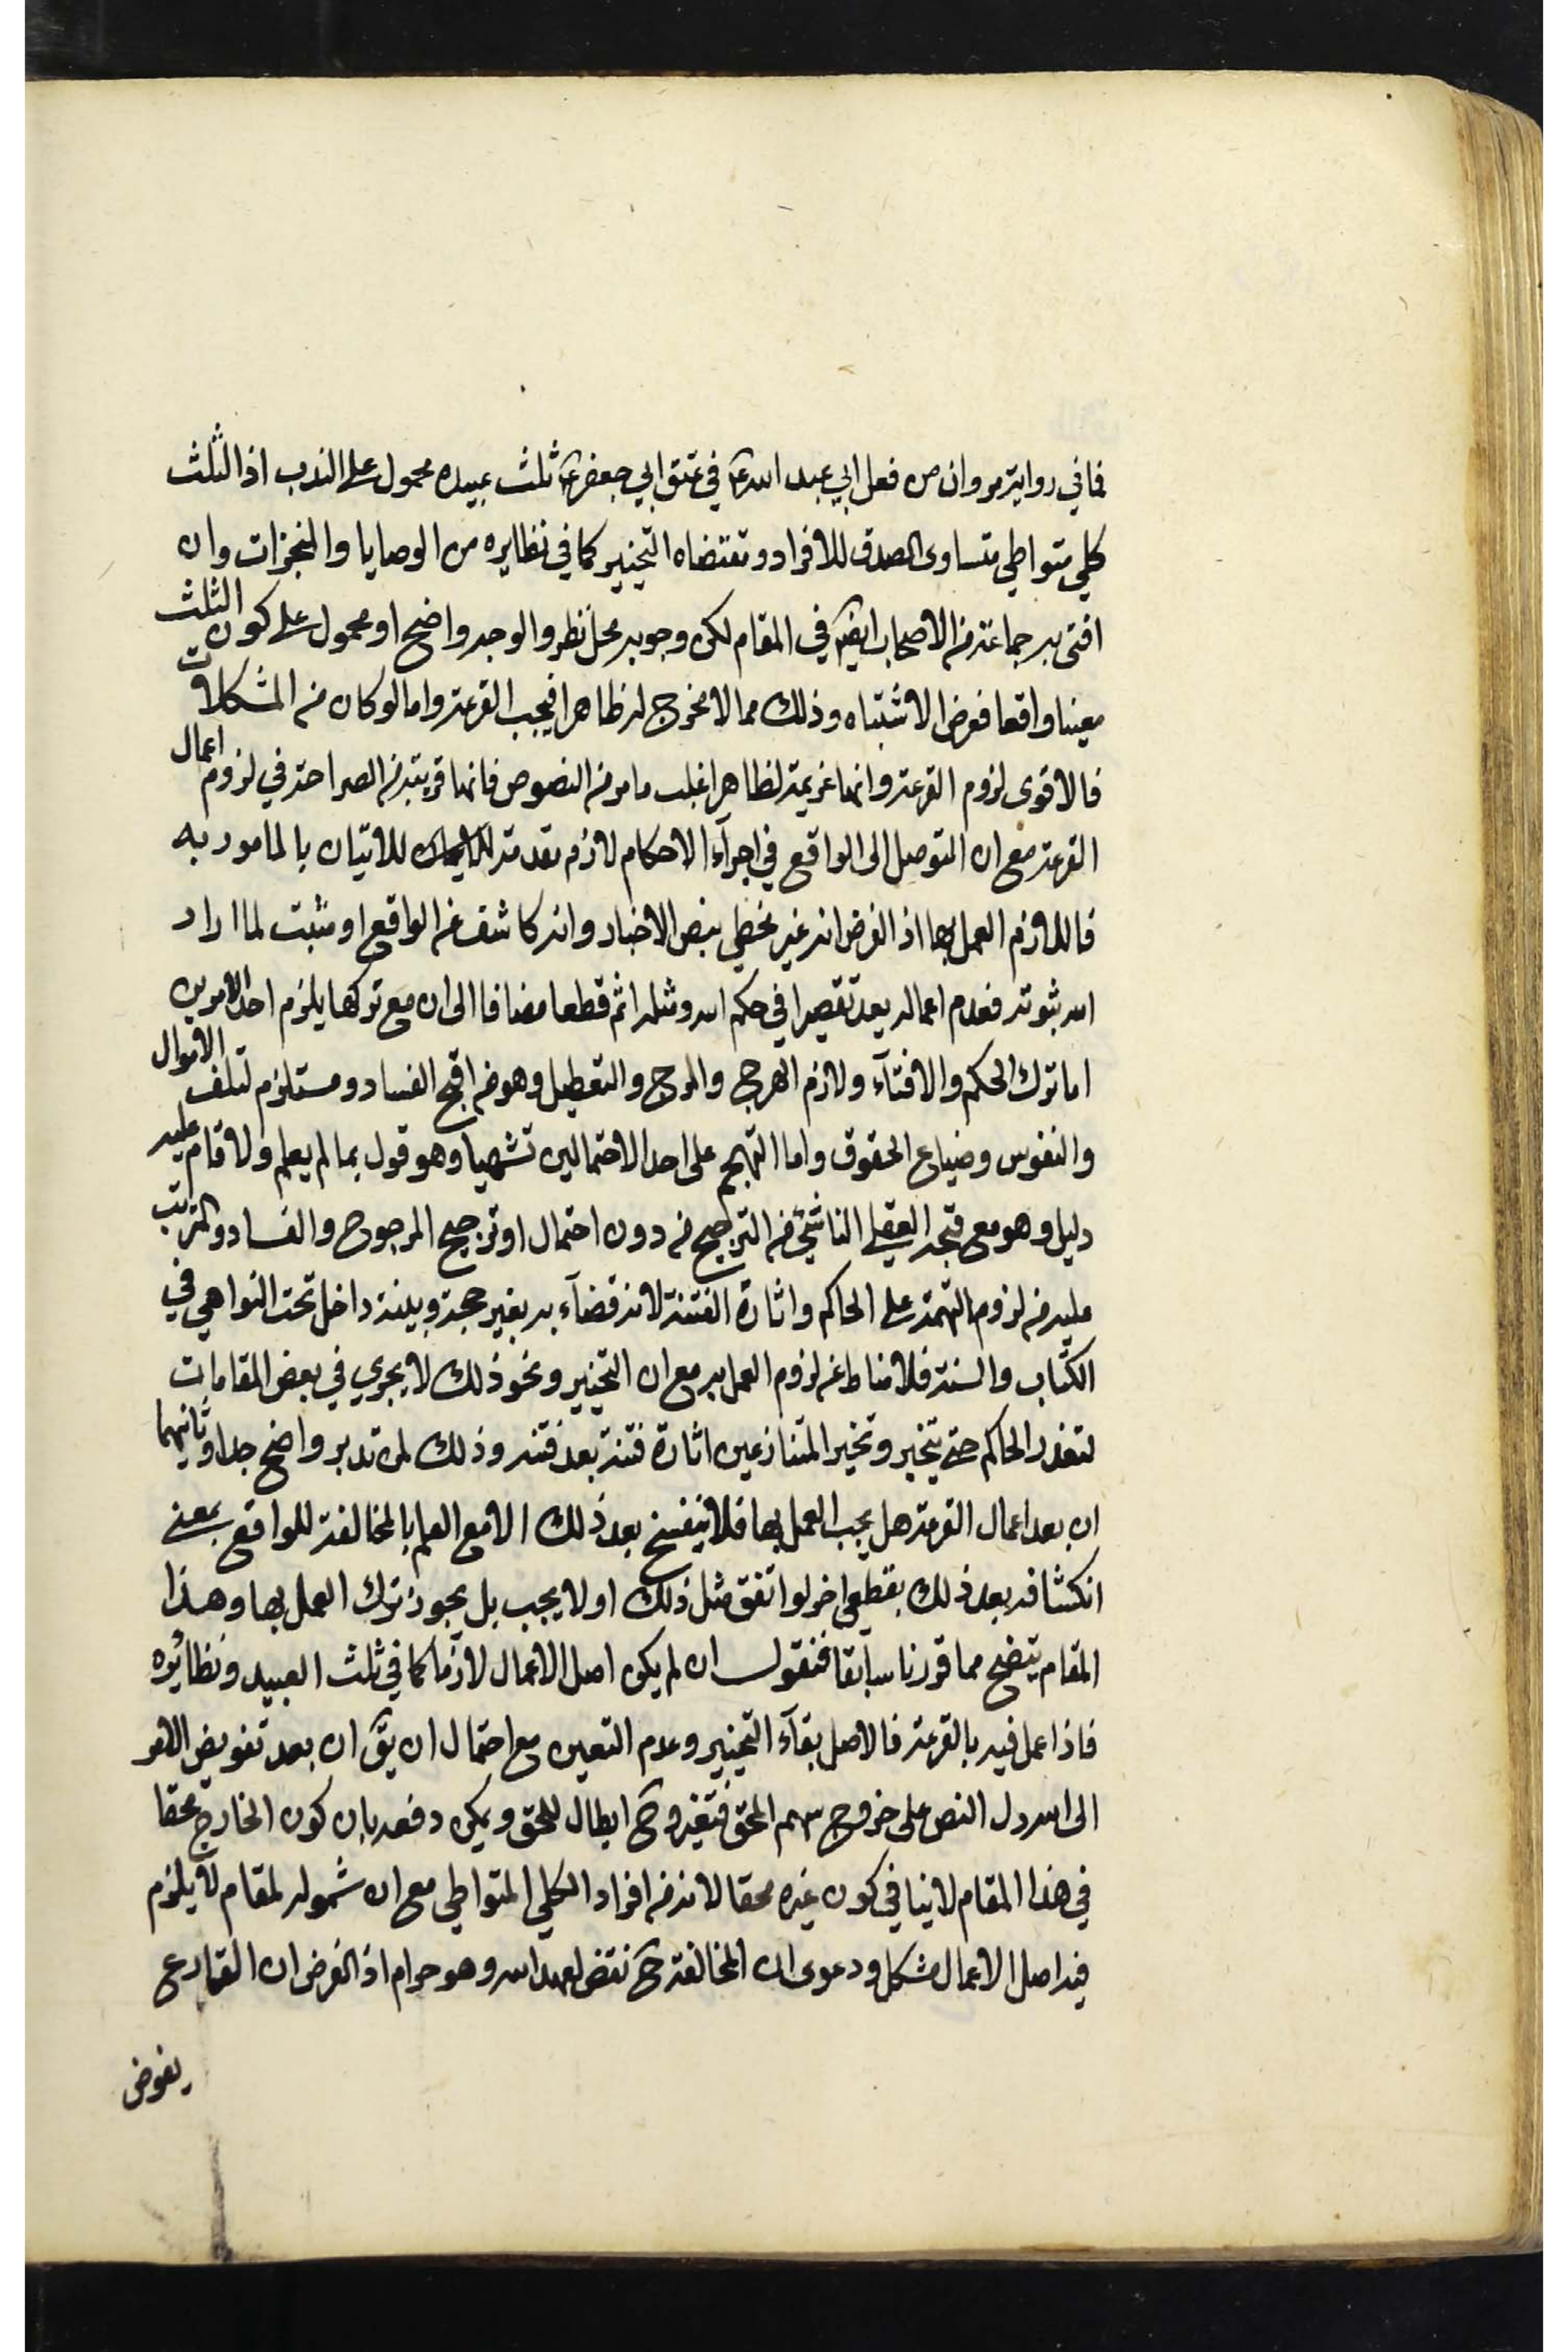 فما في رواية مروان من فعل ابي عبد الله ع في عتق ابي جعفر ع ثلث عبيده محمول على الندب اذ الثلث
كلي متواطي متساوى الصدق للافراد ومقتضاه التخيير كما في نظايره من الوصايا والمنجزات وان
افتى به جماعة من الاصحاب ايضا في المقام لكن وجوبه محل نظر والوجه واضح او محمول على كون الثلث
معينا واقعا فعرض الاشتباه وذلك مما لا مخرج له ظاهرا فيجب القرعة واما لو كان من المشكلات
فالاقوى لزوم القرعة وانها عزيمة لظاهر اغلب ما مر من النصوص فانها قريبة من الصراحة في لزوم اعمال
القرعة مع ان التوصل الى الواقع في اجراء الاحكام لازم مقدمة للاتيان بالمامور به
فاللازم العمل بها اذ الفرض انه غير مخطي بنص الاخبار وانه كاشف عن الواقع او مثبت لما اراد
الله ثبوته فعدم اعماله يعد تقصيرا في حكم الله ومثله اثم قطعا مضافا الى ان مع تركها يلزم احد الامرين
اما ترك الحكم والافتاء ولازم الهرج والمرج والتعطيل وهو من اقبح الفساد ومستلزم لتلف الاموال
والنفوس وضياع الحقوق واما التهجم على احد الاحتمالين تشهيا وهو قول بما لم يعلم ولا قام عليه
دليل وهو مع قبحه العقلي الناشئ من الترجيح من دون احتمال او ترجيح المرجوح والفساد والمترتب
عليه من لزوم التهمة على الحاكم واثارة الفتنة لانه قضاء به بغير حجة وبينة داخل تحت النواهي في
الكتاب والسنة فلا مناط عن لزوم العمل به مع ان التخيير ونحو ذلك لا يجري في بعض المقامات
لتعذر الحاكم حتى يتخير وتخير المتنازعين اثارة فتنة بعد فتنه وذلك لمن تدبر واضح جدا وثانيهما
ان بعد اعمال القرعة هل يجب العمل بها فلا ينفسخ بعد ذلك الا مع العلم بالمخالفة للواقع بمعنى
انكشافه بعد ذلك بقطعي اخر لو اتفق مثل ذلك او لا يجب بل يجوز ترك العمل بها وهذا
المقام يتضح مما قررنا سابقا فنقول ان لم يكن اصل الاعمال لازما كما في ثلث العبيد ونظائره
فاذا عمل فيه بالقرعة فالاصل بقاء التخيير وعدم التعين مع احتمال ان يق ان بعد تفويض الامر
الى الله دل النص على خروج سهم المحق فتغيره ح ابطال للحق ويمكن دفعه بان كون الخارج محقا
في هذا المقام لا ينافي كون غيره محقا لانه من افراد الكلي المتواطي مع ان شموله لمقام لا يلزم
فيه اصل الاعمال مشكل ودعوى ان المخالفة ح نقض لعهد الله وهو حرام اذ الفرض ان القارع
يفوض